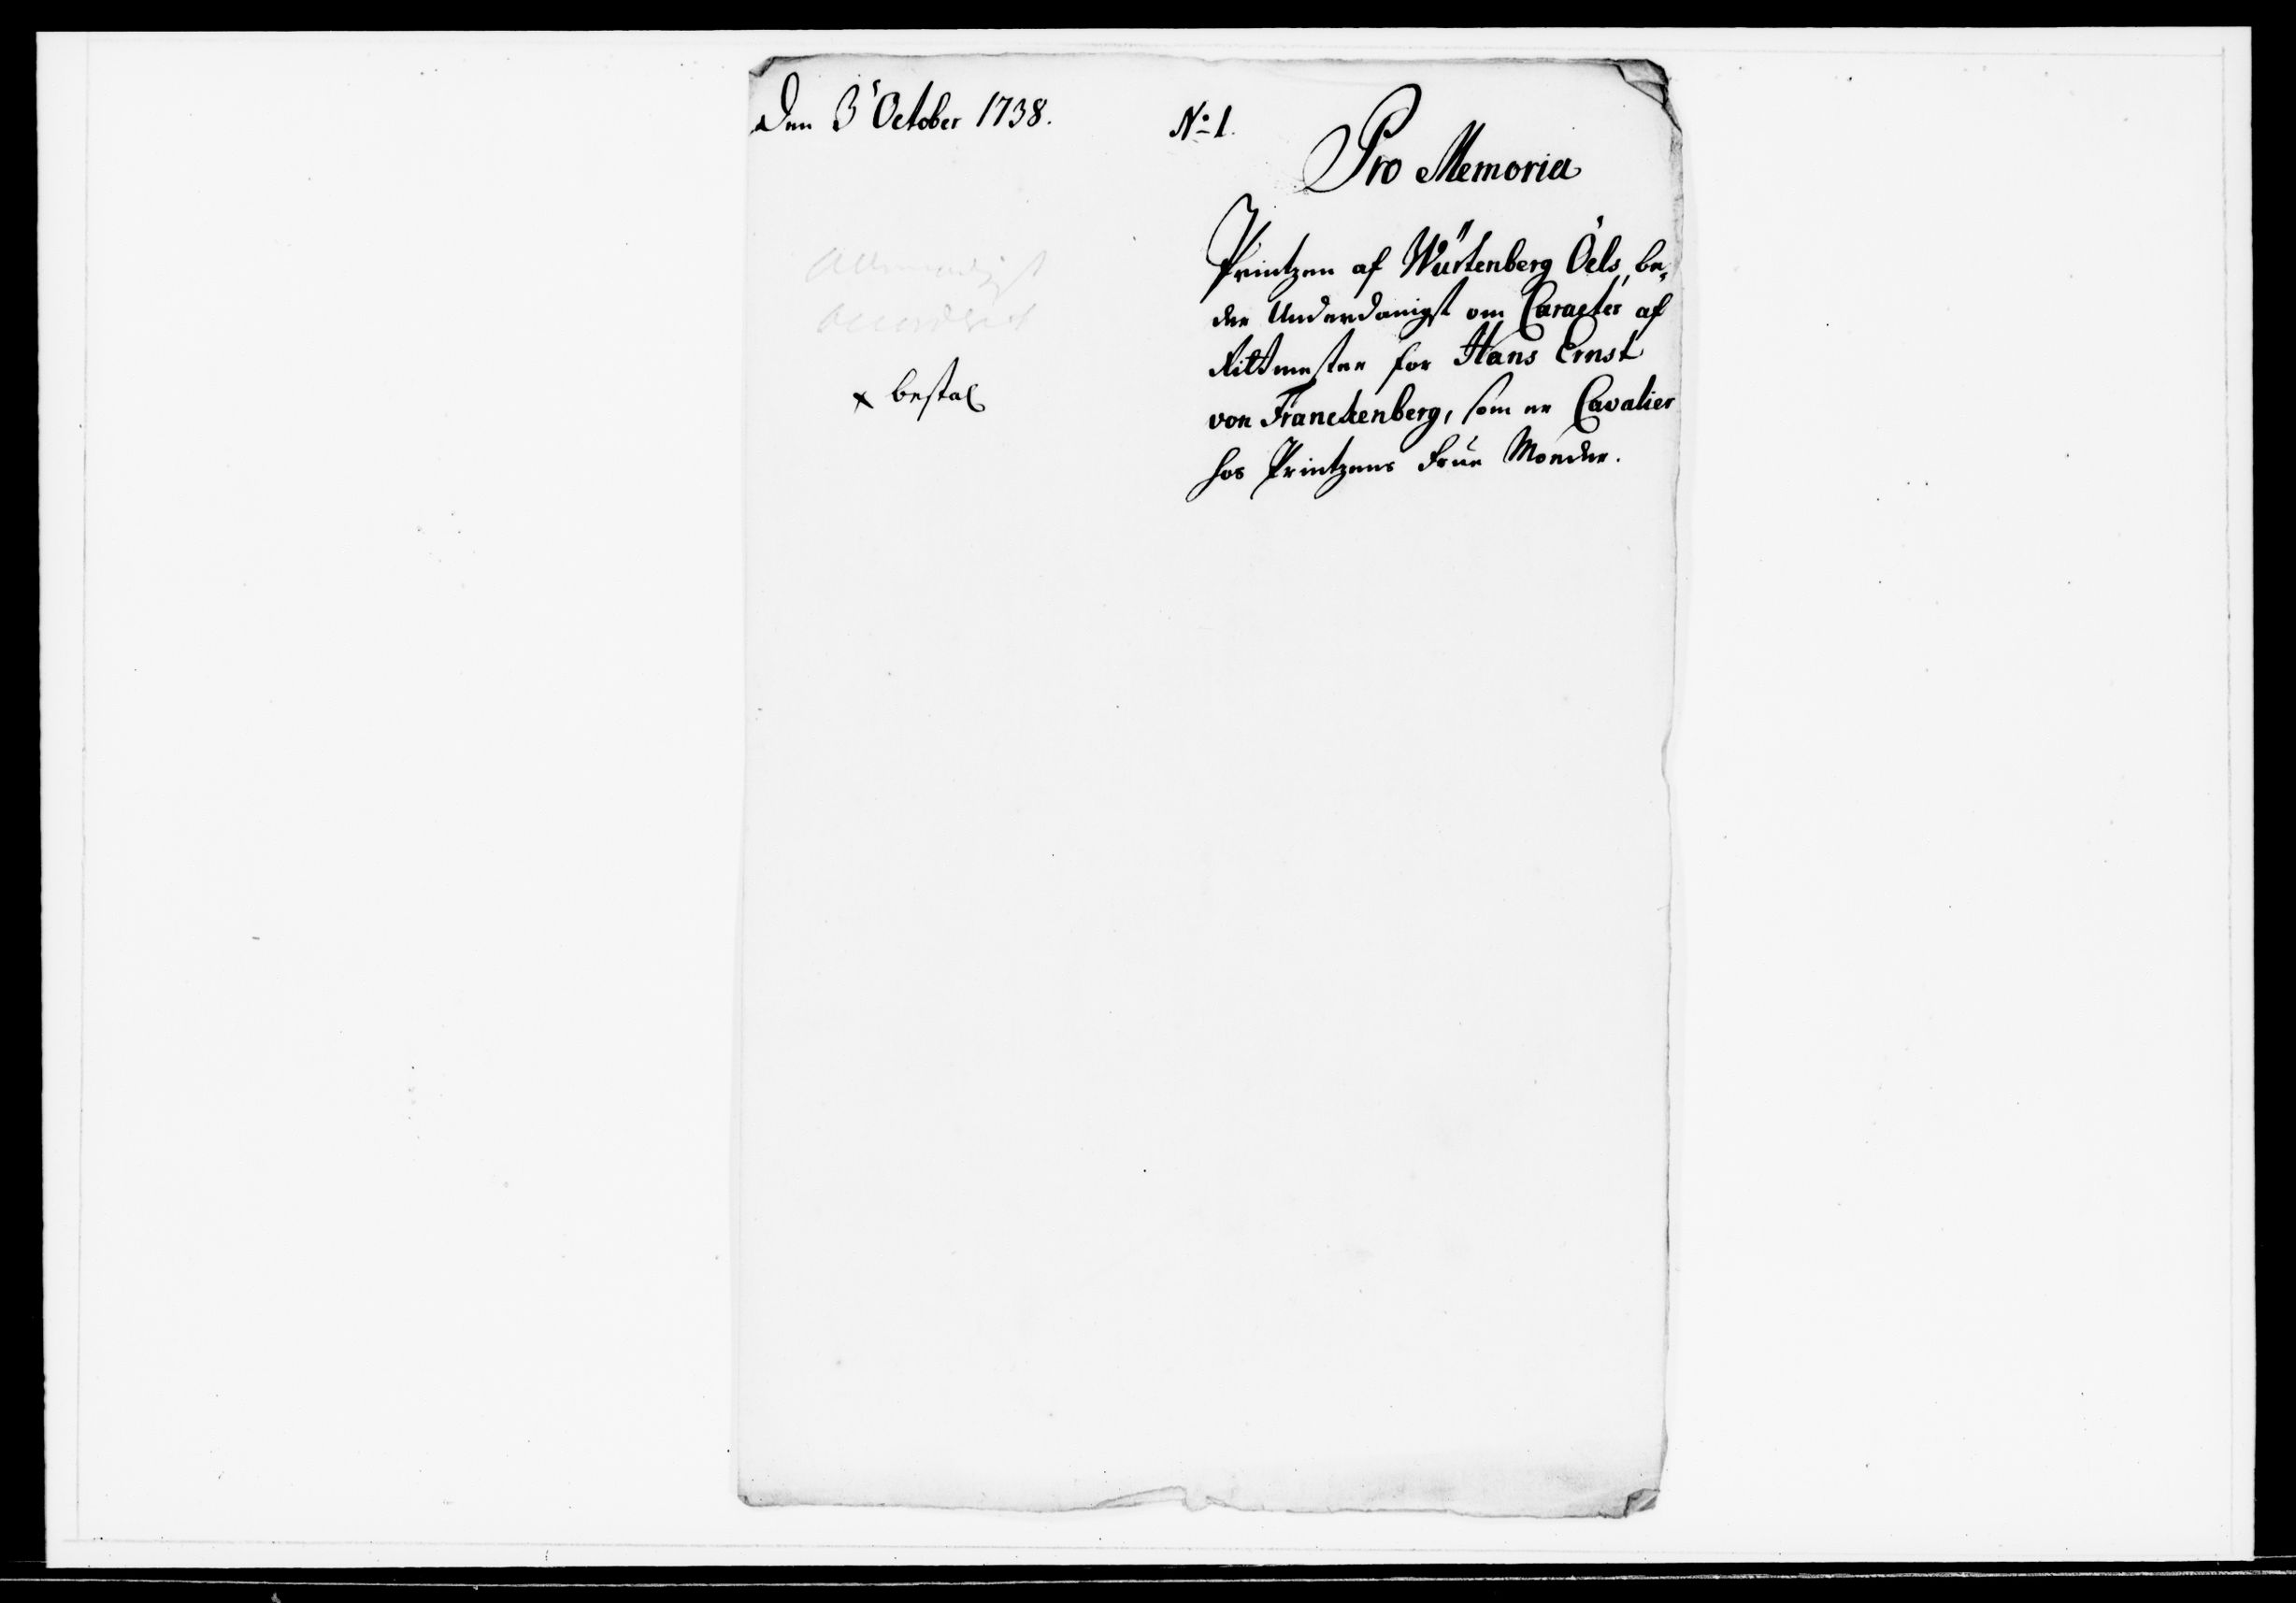 Den 3' October 1738.
No 1.
Pro Memoria
Allernaadigst
accorderet
x bestal
Printzen af Würtenberg Öels, be-
der Underdanigst om Caracter af
Rittmester for Hans Ernst
von Franckenberg, som er Cavalier
hos Printzens Frue Moeder.